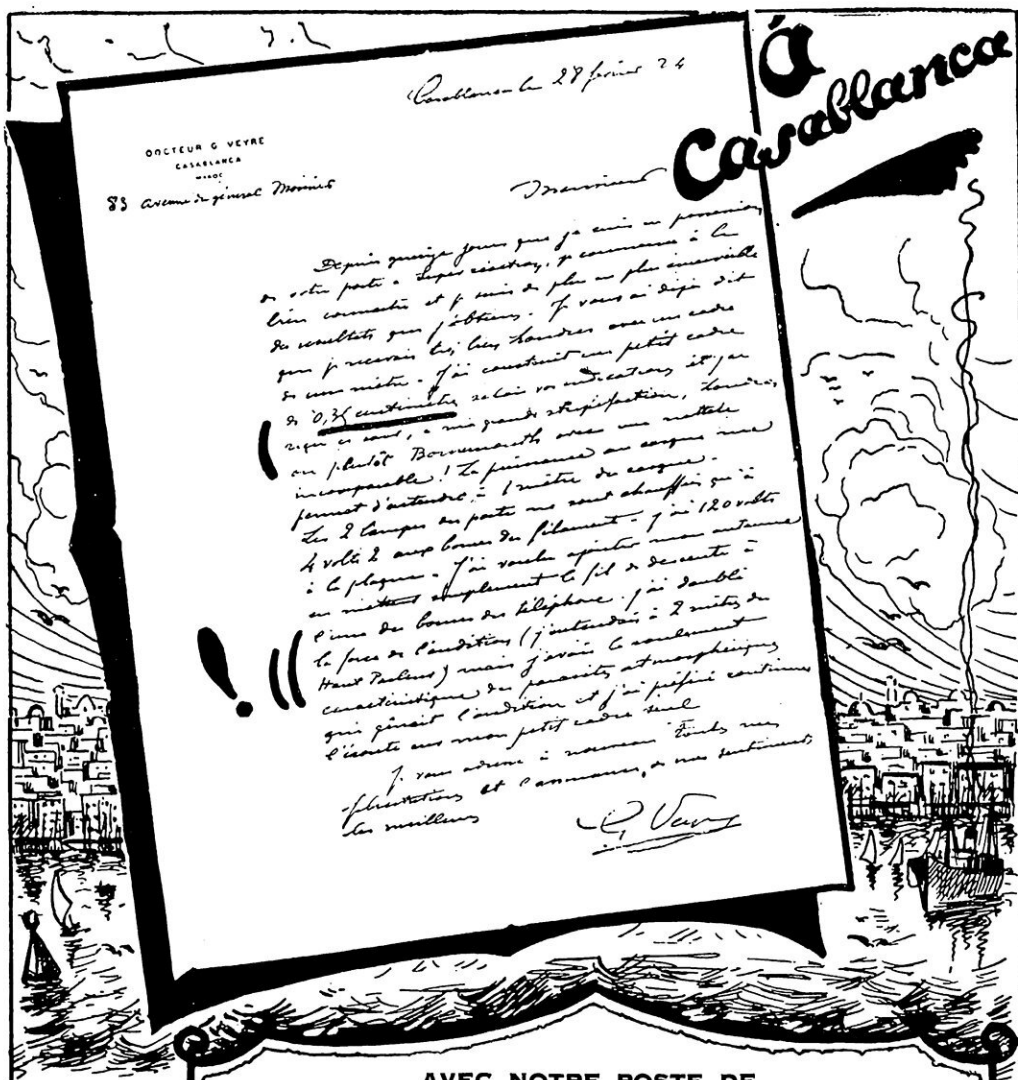 à
Casablanca
Casablanca le 28 février 24
DOCTEUR G VEYRE
CASABLANCA
MAROC
83 avenue du général Moinier
Monsieur
Depuis quinze jours que je suis en possession
de votre poste à super réaction, je commence à le
bien connaître et je suis de plus en plus émerveillé
des résultats que j'obtiens. Je vous ai déjà dit
que je recevais très bien Londres avec un cadre
de un mètre. J'ai construit un petit cadre
de 0,35 centimètres selon vos indications et j'ai
reçu ce soir, à ma grande stupéfaction, Londres
ou plutôt Bornemouth avec une netteté
incomparable ! La puissance au casque me
permet d'entendre à 1 mètre du casque.
Les 2 lampes du poste ne sont chauffées qu'à
4 volts 2 aux bornes du filament. J'ai 120 volts
à la plaque. J'ai voulu ajouter mon antenne
en mettant simplement le fil de descente à
l'une des bornes du téléphone. j'ai doublé
la force de l'audition (j'entendais à 2 mètres du
Haut Parleur) mais j'avais le roulement
caractéristique des parasites atmosphériques
qui gênait l'audition et j'ai préféré continuer
l'écoute sur mon petit cadre seul
Je vous adresse à nouveau toutes mes
félicitations et l'assurance de mes sentiments
les meilleurs
G. Veyre
! ((
AVEC NOTRE POSTE DE